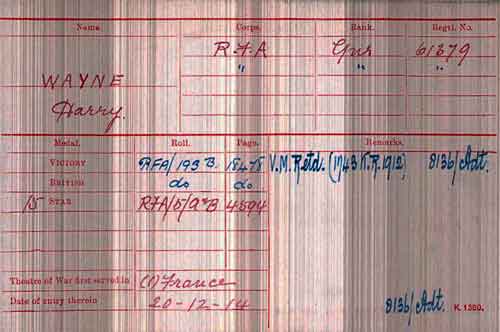 Name. Corps. Rank. Regtl. No.
R.F.A Gnr 61379
" " "
WAYNE
Harry.
Medal. Roll. Page. Remarks.
VICTORY RFA/193 B 18478 V.M. Retd. (1743 K.R. 1912) 8136/Adt.
BRITISH do do
15 STAR RFA/5/ 4594
Theatre of War first served in (1) France
Date of entry therein 20-12-14
8136/Adt. K. 1380.